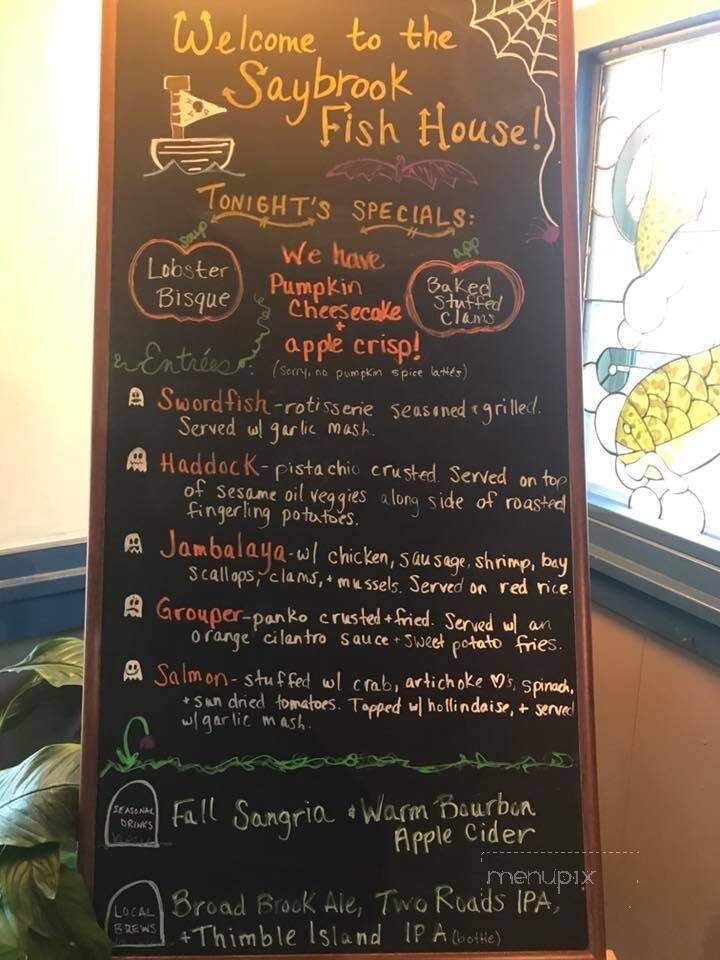 Welcome to the
Saybrook
Fish House!
TONIGHT'S SPECIALS:
soup
Lobster
Bisque
We have
Pumpkin
Cheesecake
+
apple crisp!
(sorry, no pumpkin spice lattés)
app
Baked
Stuffed
Clams
Entrées:
Swordfish - rotisserie seasoned + grilled.
Served w/ garlic mash.
Haddock - pistachio crusted. Served on top
of sesame oil veggies along side of roasted
fingerling potatoes.
Jambalaya - w/ chicken, sausage, shrimp, bay
scallops, clams, + mussels. Served on red rice.
Grouper - panko crusted + fried. Served w/ an
orange cilantro sauce + sweet potato fries.
Salmon - stuffed w/ crab, artichoke ♡'s, spinach,
+ sun dried tomatoes. Topped w/ hollindaise, + served
w/ garlic mash.
SEASONAL
DRINKS
Fall Sangria + Warm Bourbon
Apple Cider
LOCAL
BREWS
Broad Brook Ale, Two Roads IPA,
+ Thimble Island IPA (bottle)
menupix